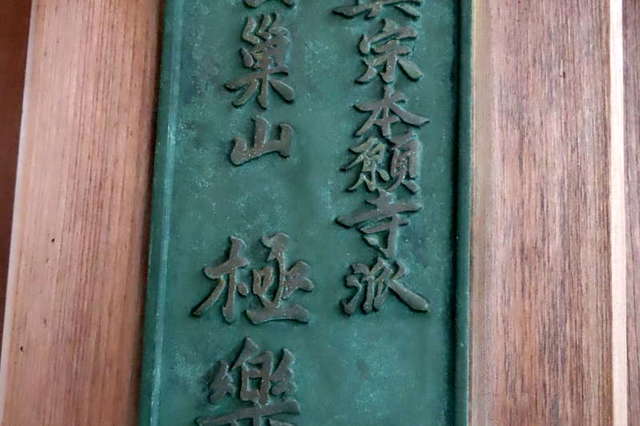 真宗本願寺派
巣山 極樂